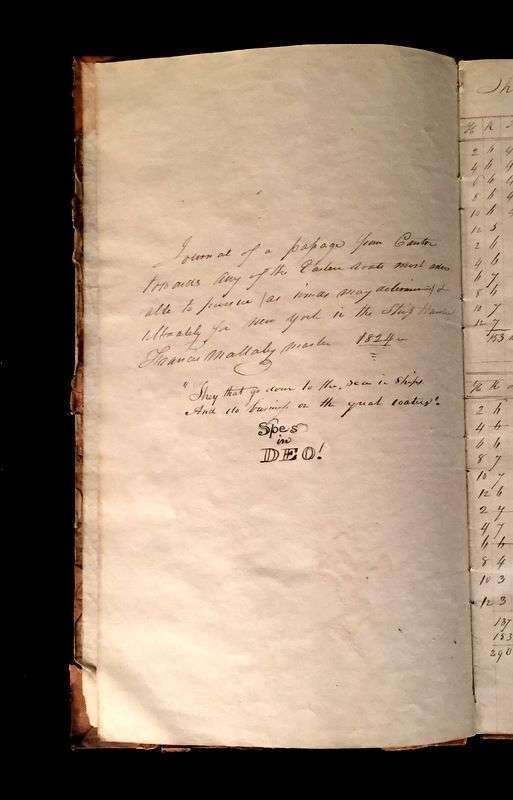 Journal of a passage from Canton
towards any of the Eastern
able to pursue (as winds may determine) &
ultimately for New York in the Ship
Francis Mallaby Master 1824
"They that go down to the sea in Ships
And do business on the great waters".
Spes
in
DEO!
H K
2 6
4 6
6 6
8 6
10 6
12 5
2 6
4 6
6 7
8 6
10 7
12 7
153
H K
2 6
4 6
6 6
8 7
10 7
12 6
2 7
4 7
6 6
8 4
10 3
12 3
137
153
290